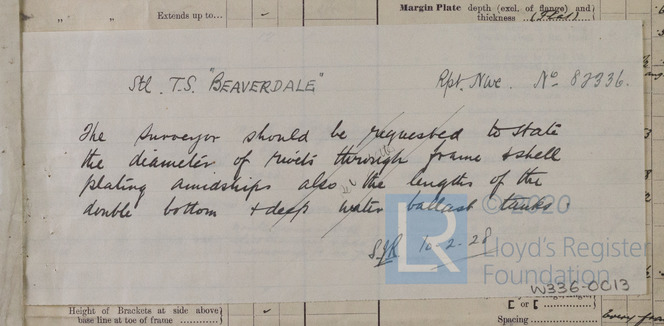 Margin Plate depth (excl. of flange) and
thickness
" " Extends up to...
Stl. T.S. "BEAVERDALE" Rpt. Nwc. No 82336.
The Surveyor should be requested to state
the diameter of rivets through frame & shell
plating amidships also the lengths of the
double bottom & deep water ballast tanks.
10.2.28
LR
© 2020
Lloyd's Register
Foundation
W336-0013
Height of Brackets at side above
base line at toe of frame
[ or [
Spacing